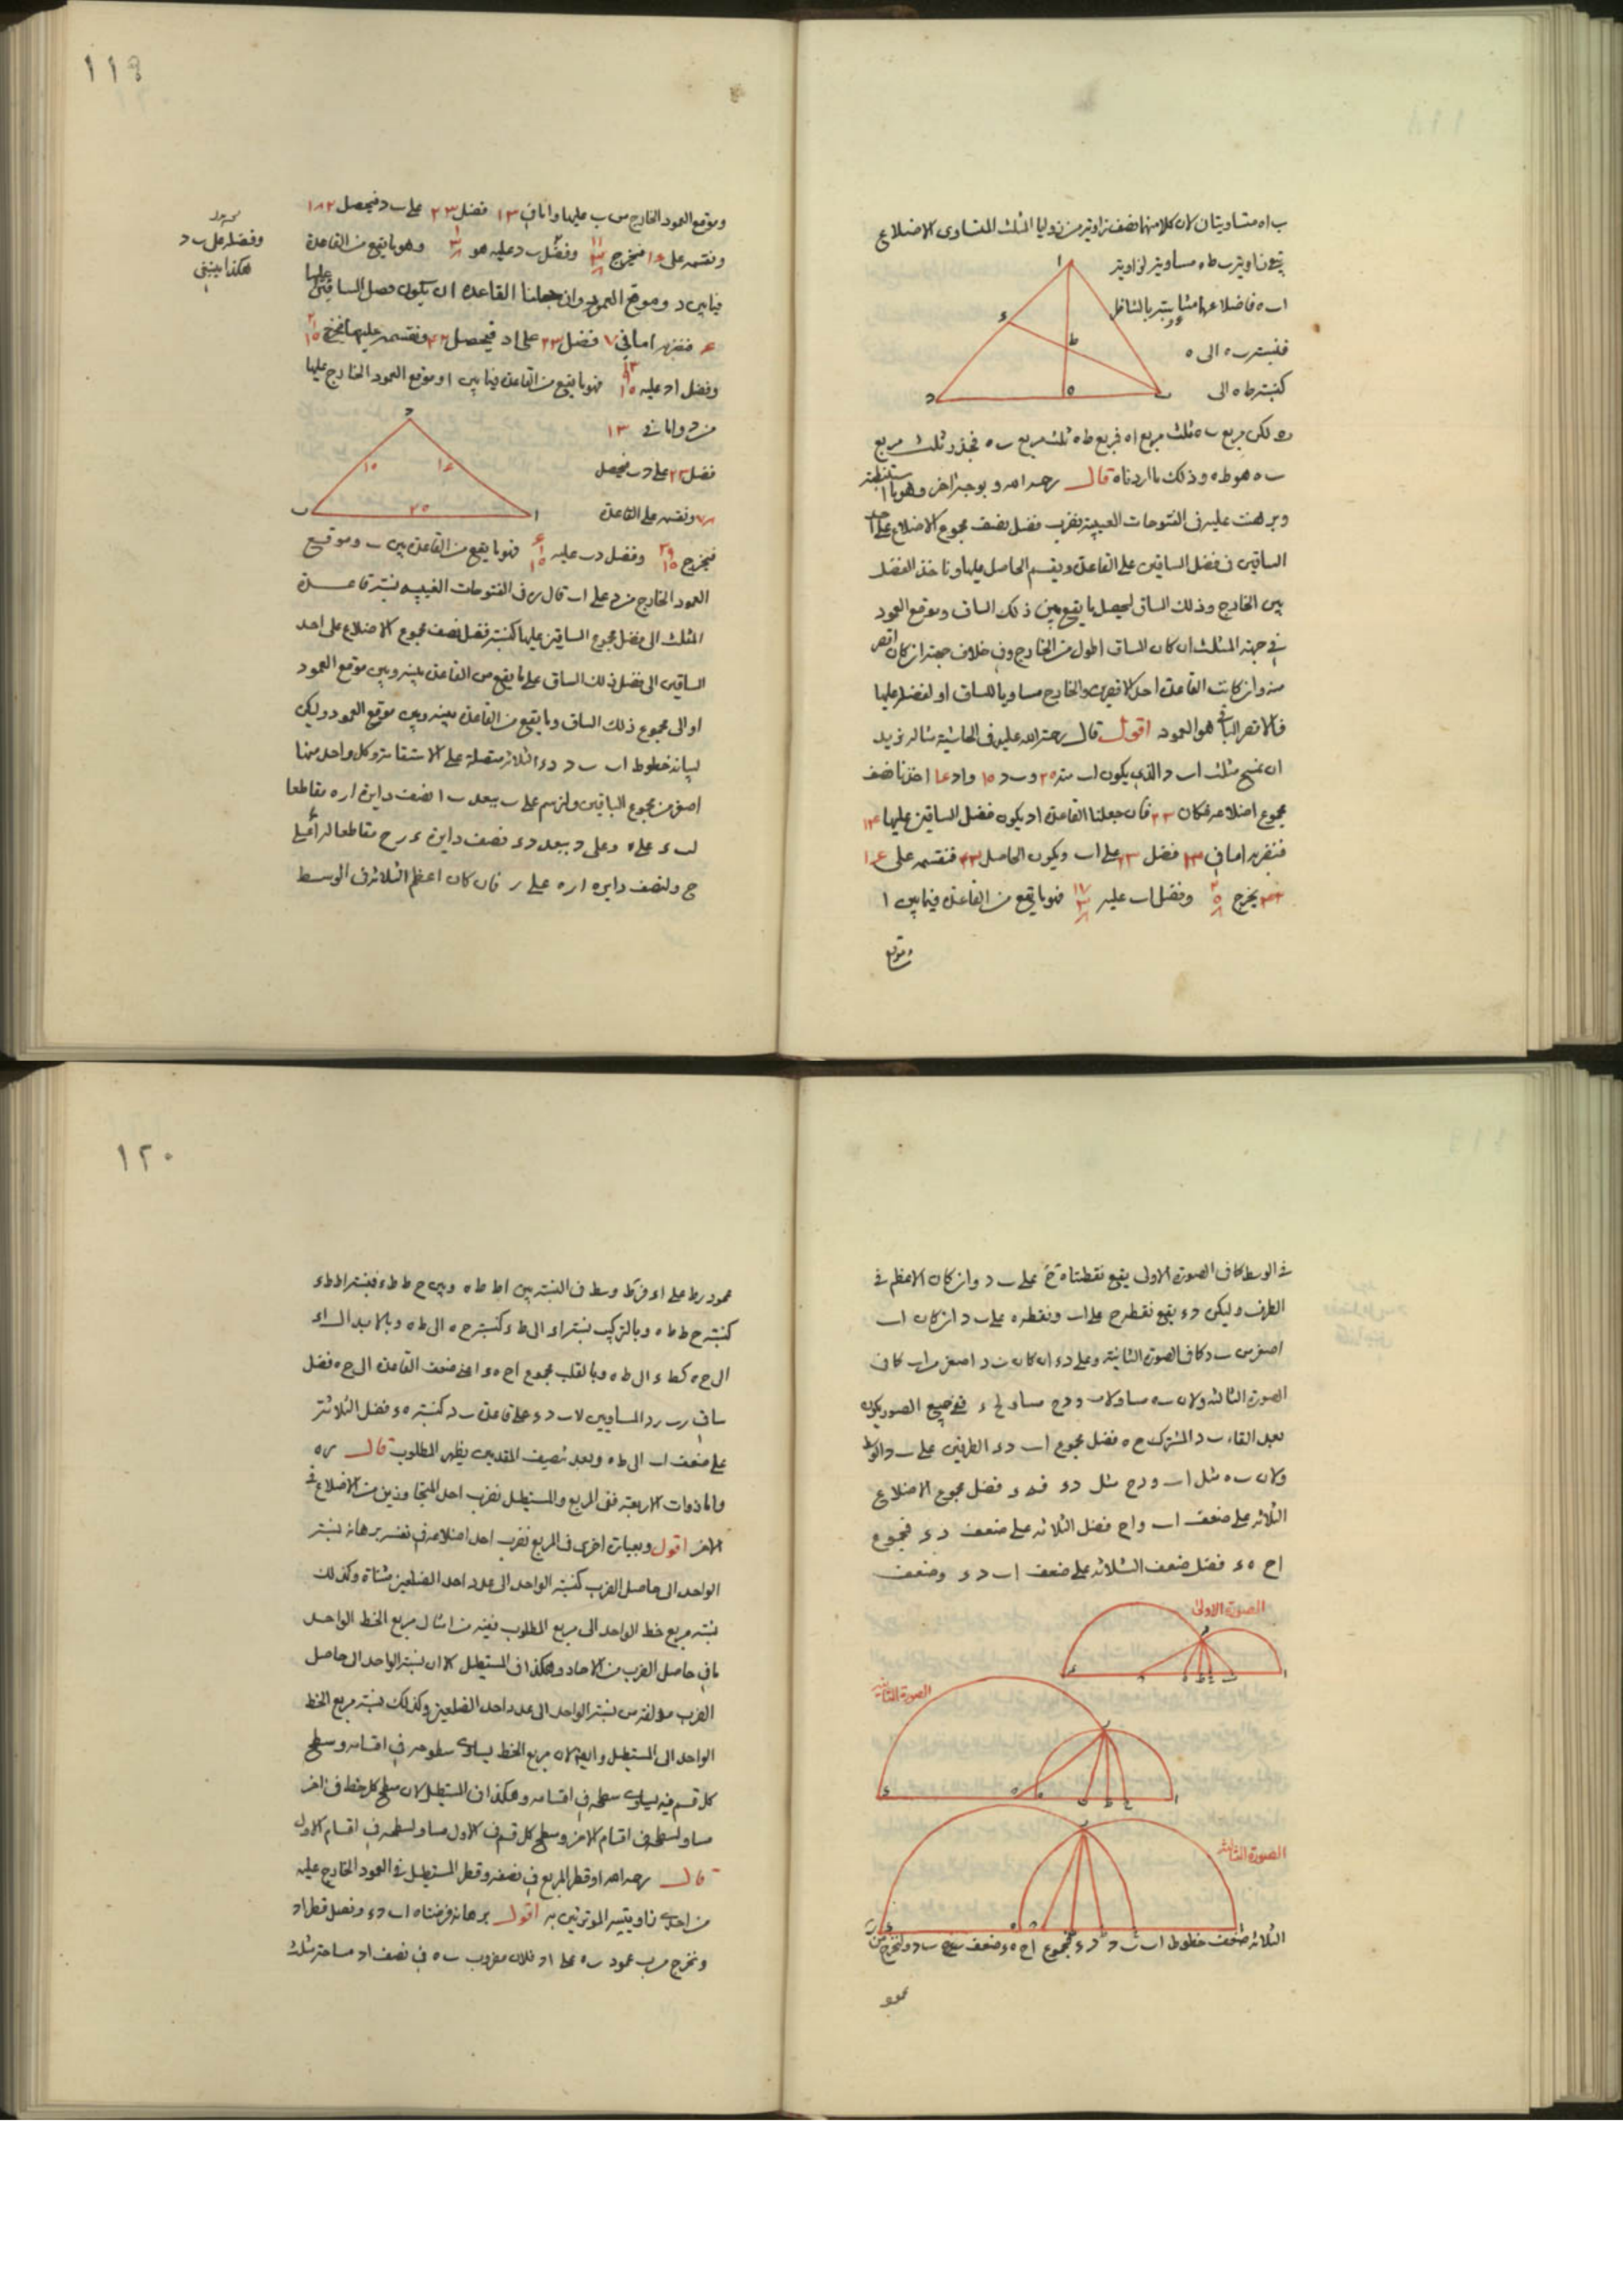 ب اه متساويتان لان كلا منهما نصف زاوية من زوايا المثلث المتساوى الاضلاع
زاوية ب ط ه مساوية لزاوية
ا ب ه فاضلاعهما متناسبة بالتناظر
فنسبة ب ه الى ه
كنسبة ط ه الى
ه لكن مربع ب ه ثلث مربع اه فمربع ط ه ثلث مربع ب ه فجذر ثلث مربع
ب ه هو ط ه وذلك ما اردناه قال رحمه الله وبوجه اخر وهو ما استنبطته
وبرهنت عليه فى الفتوحات الغيبية نضرب فضل نصف مجموع الاضلاع على احد
الساقين فى فضل الساقين على القاعدة ونقسم الحاصل عليها وناخذ الفضل
بين الخارج وذلك الساق ليحصل ما يقع بين ذلك الساق وموقع العمود
فى جهة المثلث ان كان الساق اطول من الخارج وفى خلاف جهته ان كان اقصر
منه وان كانت القاعدة احد الاقصرين والخارج مساويا للساق او لفضله عليها
فالاقصر الباقى هو العمود اقول قال رحمة الله عليه فى الحاشية مثاله نريد
ان نمسح مثلث ا ب د الذى يكون ا ب منه ٢٥ و ب د ١٥ و اد ١٤ اخذنا نصف
مجموع اضلاعه فكان ٢٣ فان جعلنا القاعدة اد يكون فضل الساقين عليها
فنضربه اما فى فضل ٢٣ على ا ب ويكون الحاصل فنقسمه على ١٤
يخرج وفضل ا ب عليه فهو ما يقع من القاعدة فيما بين ا
وموقع
١١٩
وموقع العمود الخارج من ب عليها واما فى ١٣ فضل ٢٣ على ب د فيحصل ١٨٢
ونقسمه على ١٤ فيخرج وفضل ب د عليه هو وهو ما يقع من القاعدة
فيما بين د وموقع العمود وان جعلنا القاعدة ا ب يكون فضل الساقين عليها
٤ فنضربه اما فى ٧ فضل ٢٣ على اد فيحصل ونقسمه عليها فيخرج
وفضل اد عليه فهو ما يقع من القاعدة فيما بين ا وموقع العمود الخارج عليها
من د واما فى ١٣
فضل ٢٣ على د ب فيحصل
ونقسمه على القاعدة
فيخرج وفضل د ب عليه فهو ما يقع من القاعدة بين ب وموقع
العمود الخارج من د على ا ب قال ره فى الفتوحات الغيبيه نسبة قاعدة
المثلث الى فضل مجموع الساقين عليها كنسبة فضل نصف مجموع الاضلاع على احد
الساقين الى فضل ذلك الساق على ما يقع من القاعدة بينه وبين موقع العمود
او الى مجموع ذلك الساق وما يقع من القاعدة بينه وبين موقع العمود وليكن
لبيانه خطوط ا ب ب د د ء الثلاثة متصلة على الاستقامة وكل واحد منها
اصغر من مجموع الباقيين ولنرسم على ب ببعد ب ا نصف دايرة ا ر ه مقاطعا
ل ب ء على ه وعلى د ببعد د ء نصف دايرة ء ر ح مقاطعا ل ا ء على
ح ولنصف دايره ا ر ه على ر فان كان اعظم الثلاثة فى الوسط
وفضله على ب د
هكذا ينبغى
فى الوسط كما فى الصورة الاولى يقع نقطتا ه ح على ب د وان كان الاعظم فى
الطرف وليكن د ء يقع نقطة ح على ا ب ونقطة ه على ب د ان كان ا ب
اصغر من ب د كما فى الصورة الثانية وعلى د ء ان كان ب د اصغر من ا ب كما فى
الصورة الثالثة ولان ب ه مساو ل ا ب و د ح مساو ل د ء ففى جميع الصور يكون
بعد القاء ب د المشترك ح ه فضل مجموع ا ب د ء الطرفين على ب د الوسط
ولان ب ه مثل ا ب و د ح مثل د ء فضل مجموع الاضلاع
الثلاثة على ضعف ا ب و ا ح فضل الثلاثه على ضعف د ء فمجموع
ا ح ه ء فضل ضعف الثلاثه على ضعف ا ب د ء وضعف
الصورة الاولى
الصورة الثانية
الصورة الثالثة
الثلاثة ضعف خطوط ا ب ب د د ء فمجموع ا ح ه ء ضعف ب د ولنخرج من
عمود
١٢٠
عمود ر ط على ا ء ف ر ط وسط فى النسبة بين ا ط ط ه وبين ح ط ط ء فنسبة ا ط ط ء
كنسبة ح ط ط ه وبالتركيب نسبة ا ء الى ط ء كنسبة ح ه الى ط ه وبالابدال ا ء
الى ح ه ك ط ء الى ط ه وبالقلب مجموع ا ح ه ء اعنى ضعف القاعدة الى ح ه فضل
ساقى ر ب ر د المساويين ل ا ب د ء على قاعدة ب د كنسبة ه ء فضل الثلاثة
على ضعف ا ب الى ط ه وبعد تنصيف المقدمين يظهر المطلوب قال ره
واما ذوات الاربعة ففى المربع والمستطيل نضرب احد المتجاورين من الاضلاع فى
الاخر اقول وبعبارة اخرى فى المربع نضرب احد اضلاعه فى نفسه برهانه نسبة
الواحد الى حاصل الضرب كنسبة الواحد الى عدد احد الضلعين مثناة وكذلك
نسبة مربع خط الواحد الى مربع المطلوب ففيه من امثال مربع الخط الواحد
ما فى حاصل الضرب من الاحاد وهكذا فى المستطيل لان نسبة الواحد الى حاصل
الضرب مؤلفة من نسبة الواحد الى عدد احد الضلعين وكذلك نسبة مربع الخط
الواحد الى المستطيل وايضا لان مربع الخط يساوى سطوحه فى اقسامه وسطح
كل قسم فيه يساوى سطحه فى اقسامه وهكذا فى المستطيل لان سطح كل خط فى اخر
مساو لسطحه فى اقسام الاخر وسطح كل قسم فى الاول مساو لسطحه فى اقسام الاول
قال رحمه الله او قطر المربع فى نصفه وقطر المستطيل فى العمود الخارج عليه
من احدى زاويتيه الموترتين به اقول برهانه فرضناه ا ب د ء ونصل قطر اد
ونخرج من ب عمود ب ه على اد فلان مضروب ب ه فى نصف اد مساحة مثلث